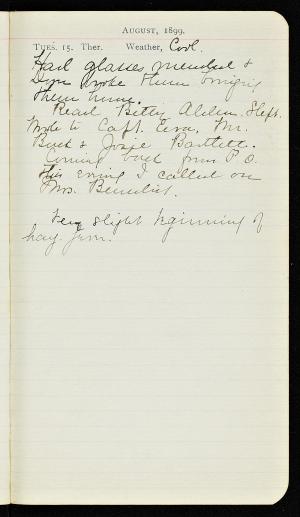 AUGUST, 1899.
TUES. 15. Ther. Weather, Cool.
Had glasses mended &
broke them bringing
them home.
Read Betty Alden. Slept.
Wrote to Capt. Mr.
Buck & Josie Bartlett.
Coming back from P.O.
this evning I called on
Mrs. Benedict.
Very slight beginning of
hay fever.